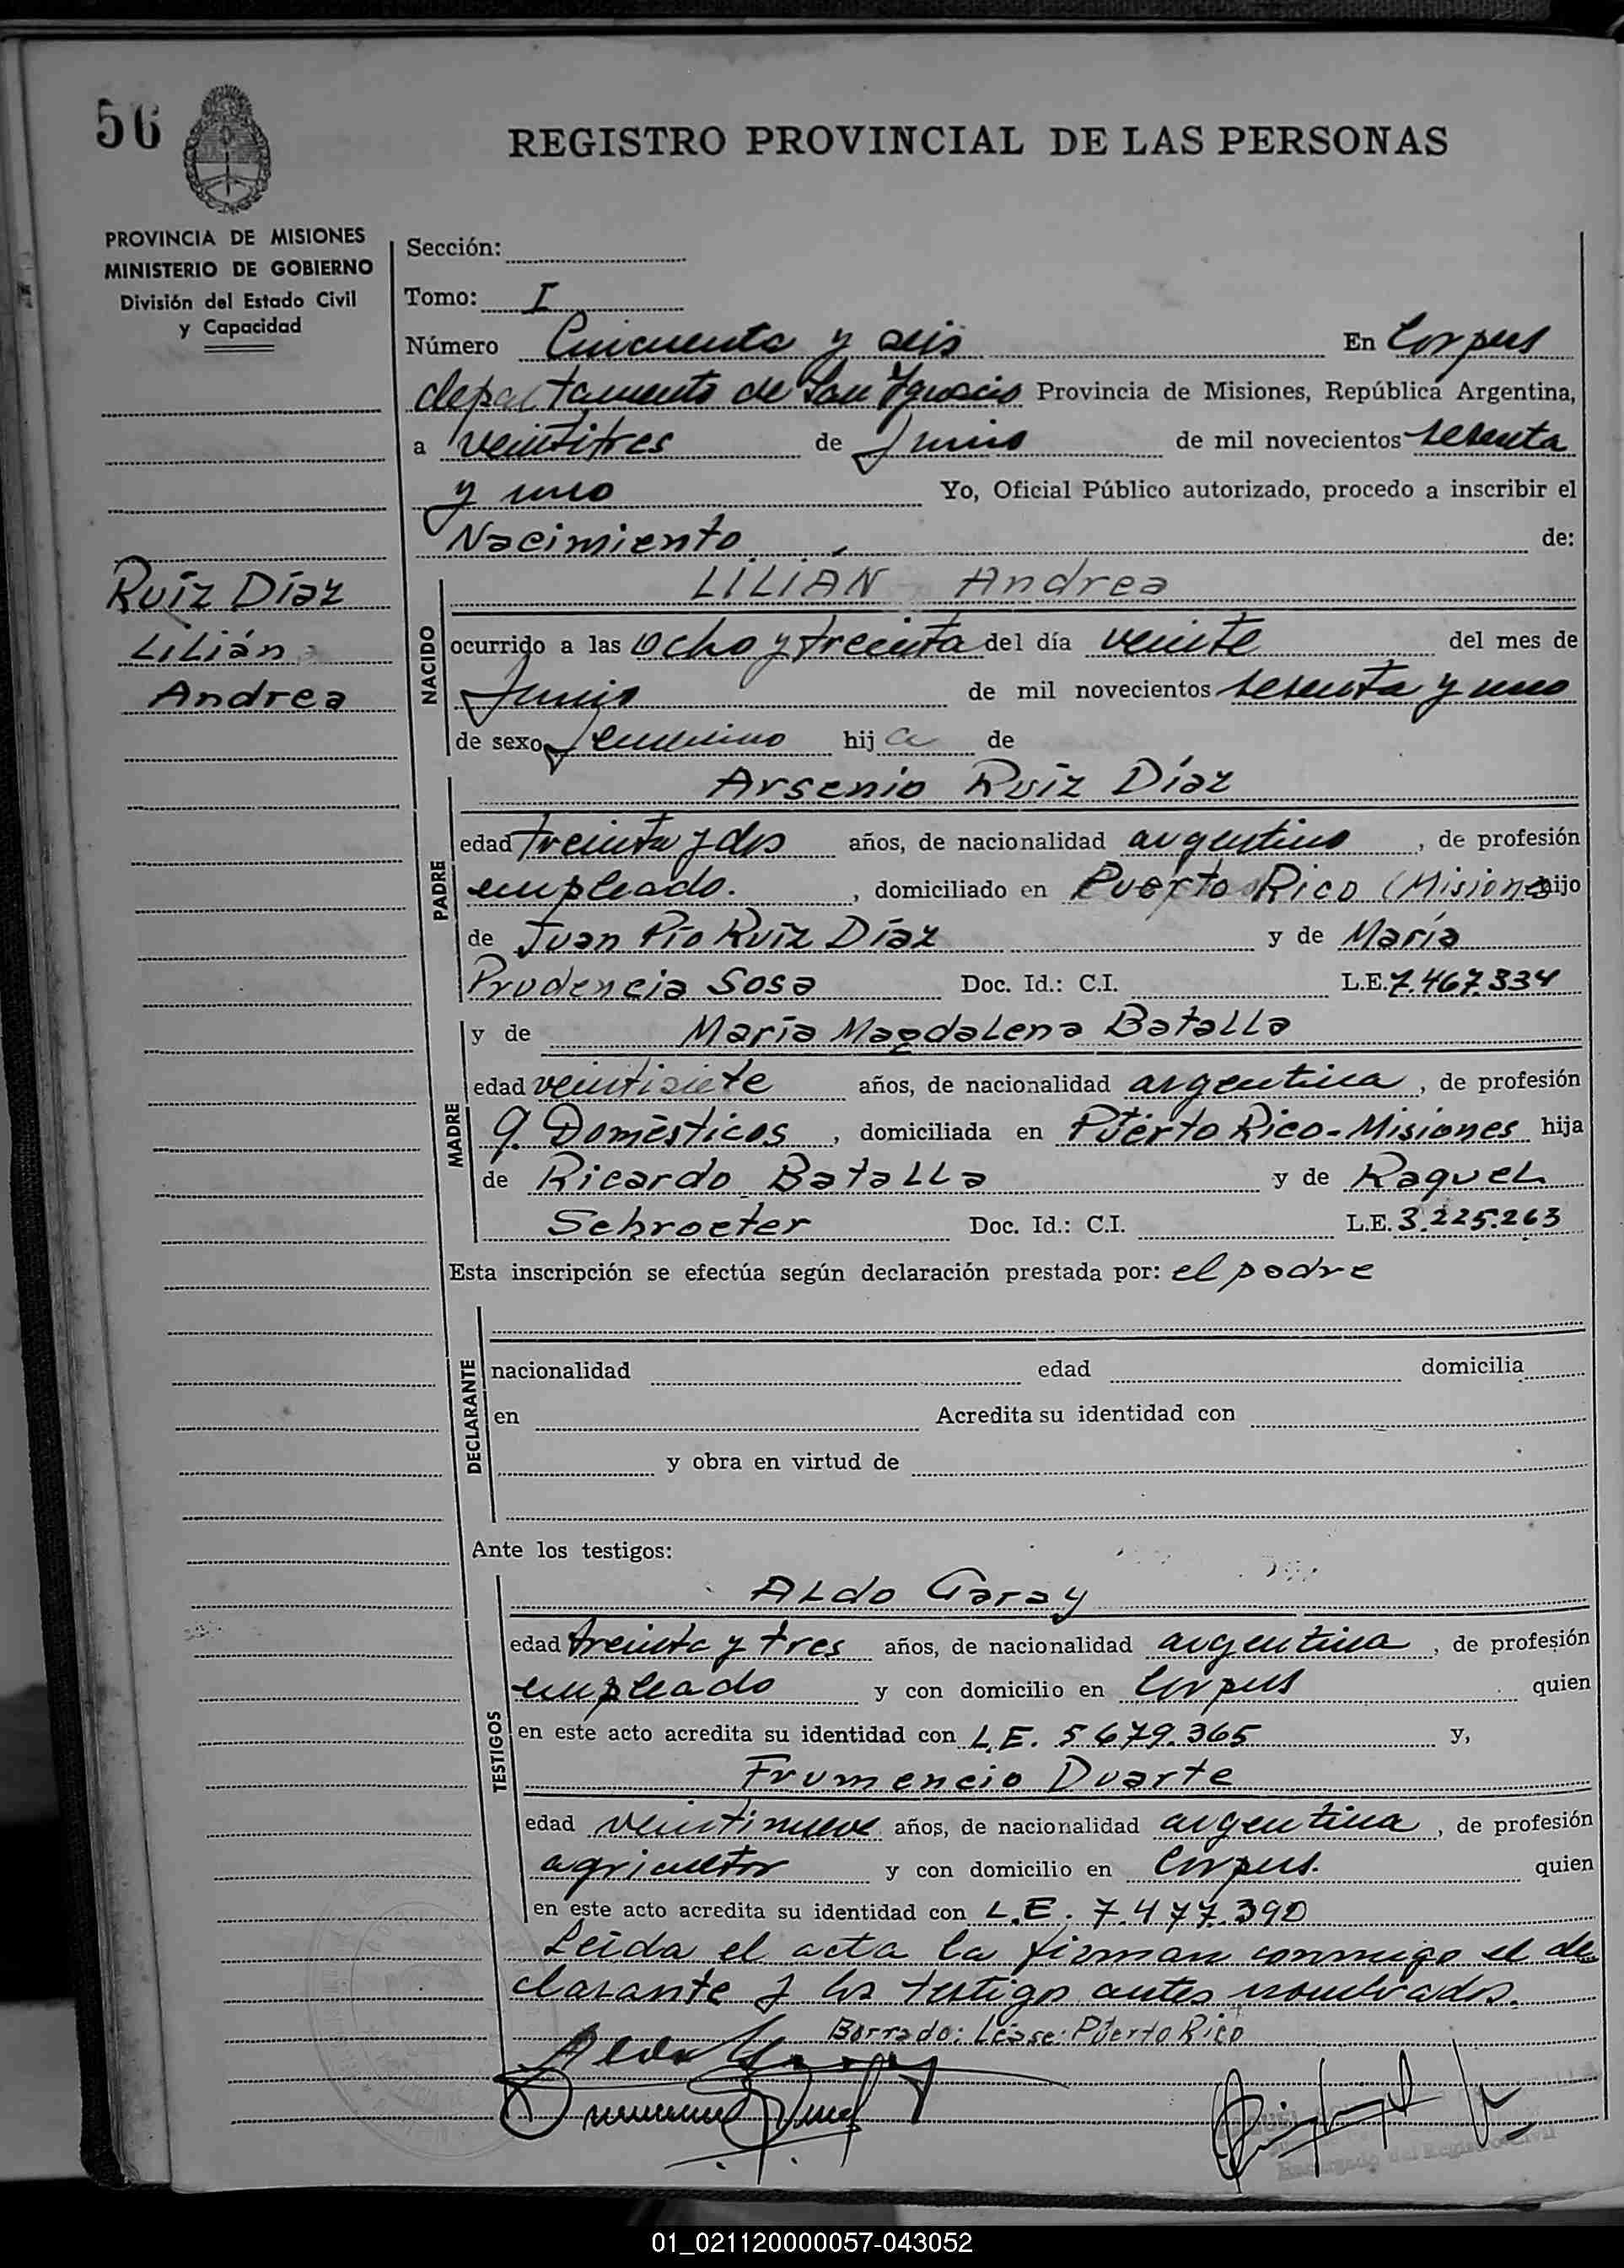 56
REGISTRO PROVINCIAL DE LAS PERSONAS
PROVINCIA DE MISIONES
MINISTERIO DE GOBIERNO
División del Estado Civil
y Capacidad
Sección:
Tomo: I
Número Cincuenta y seis En Corpus
departamento de San Ignacio Provincia de Misiones, República Argentina,
a veintitres de Junio de mil novecientos setenta
y uno Yo, Oficial Público autorizado, procedo a inscribir el
Nacimiento de:
Ruíz Díaz
Lilián
Andrea
NACIDO
LILIAN Andrea
ocurrido a las ocho y treinta del día veinte del mes de
Junio de mil novecientos setenta y uno
de sexo femenino hija de
PADRE
Arsenio Ruíz Díaz
edad treinta y dos años, de nacionalidad argentino, de profesión
empleado., domiciliado en Puerto Rico (Misiones hijo
de Juan Pío Ruíz Díaz y de María
Prudencia Sosa Doc. Id.: C.I. L.E. 7.467.334
MADRE
y de María Magdalena Batalla
edad veintisiete años, de nacionalidad argentina, de profesión
q. Domésticos, domiciliada en Puerto Rico-Misiones hija
de Ricardo Batalla y de Raquel
Schroeter Doc. Id.: C.I. L.E. 3.225.263
Esta inscripción se efectúa según declaración prestada por: el padre
DECLARANTE
nacionalidad edad domicilia
en Acredita su identidad con
y obra en virtud de
Ante los testigos:
TESTIGOS
Aldo Garay
edad treinta y tres años, de nacionalidad argentina, de profesión
empleado y con domicilio en Corpus quien
en este acto acredita su identidad con L.E. 5679.365 y,
Frumencio Duarte
edad veintinueve años, de nacionalidad argentina, de profesión
agricultor y con domicilio en Corpus. quien
en este acto acredita su identidad con L.E. 7.477.390
Leída el acta la firman conmigo el de
clarante y los testigo antes nombrados.
Borrado: Léase: Puerto Rico
Encargado del Registro Civil
01_021120000057-043052